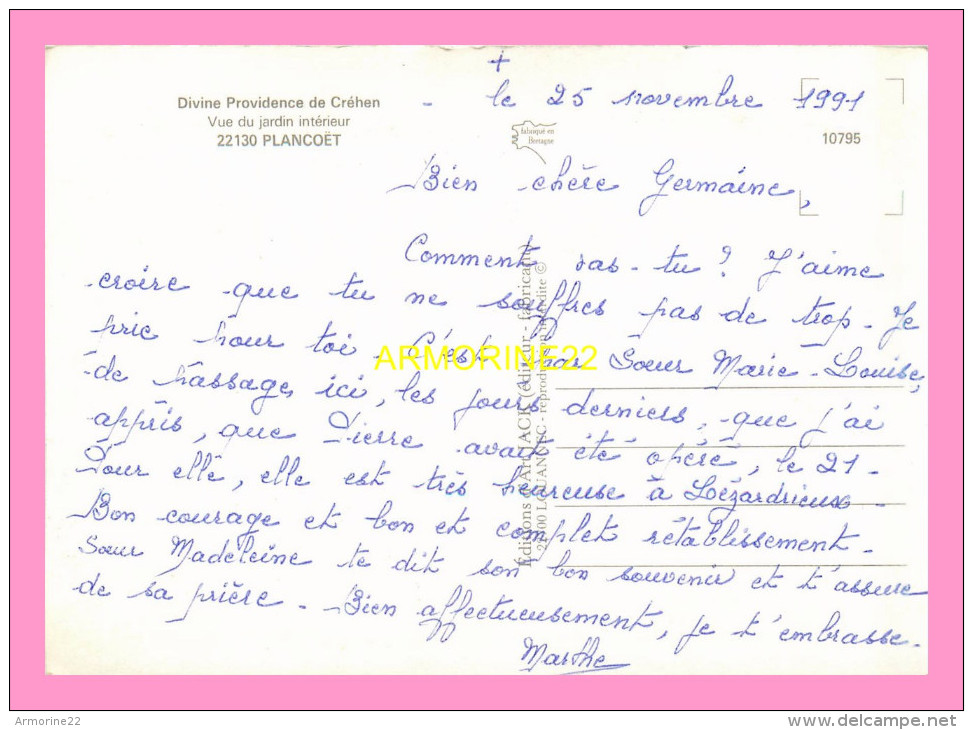 +
Divine Providence de Créhen
Vue du jardin intérieur
22130 PLANCOËT
- le 25 novembre 1991
fabriqué en
Bretagne
10795
Bien chère Germaine,
Comment vas-tu ? J'aime
croire que tu ne souffres pas de trop. Je
prie pour toi. C'est par Soeur Marie-Louise,
de passage, ici, les jours derniers, que j'ai
appris, que Pierre avait été opéré, le 21-
Pour elle, elle est très heureuse à Lézardrieux.
Bon courage et bon et complet rétablissement.
Soeur Madeleine te dit son bon souvenir et t'assure
de sa prière. Bien affectueusement, je t'embrasse.
Marthe
Éditions d'Art JACK (éditeur - fabricant)
LOUANNEC - reproduction interdite ©
ARMORINE22
Armorine22
www.delcampe.net